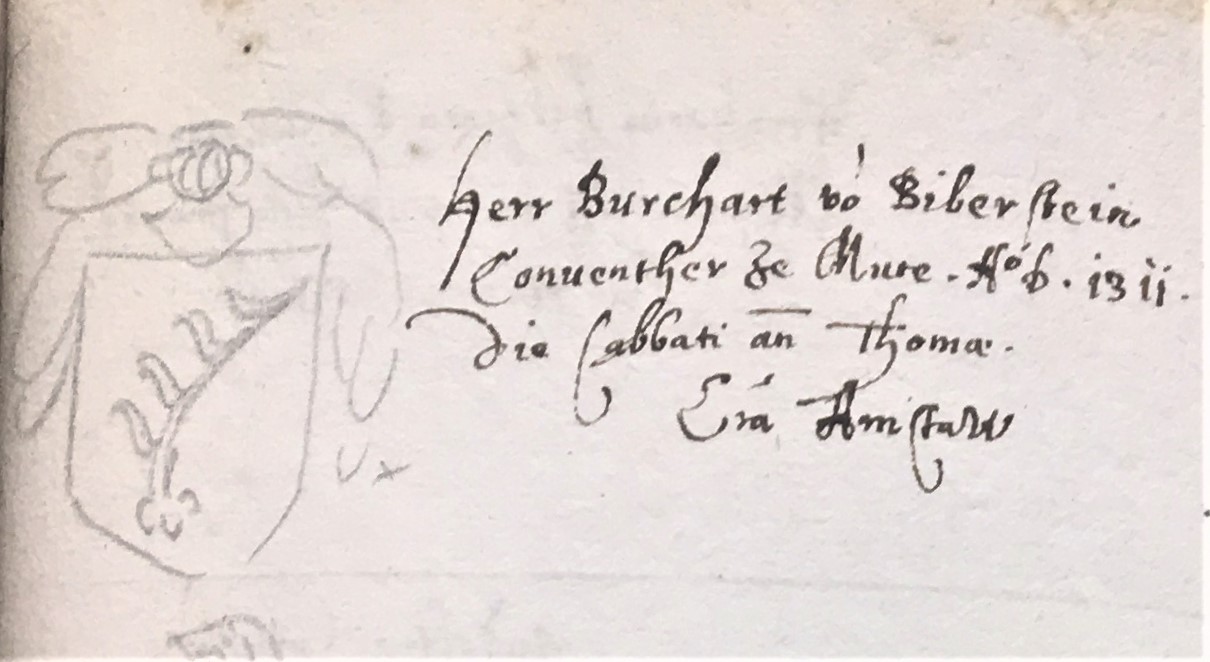 Herr Burchart vō Biberstein
Conuenther ze Mure . Aº b . 1311 .
Die Sabbati an̄ Thomæ .
Erā